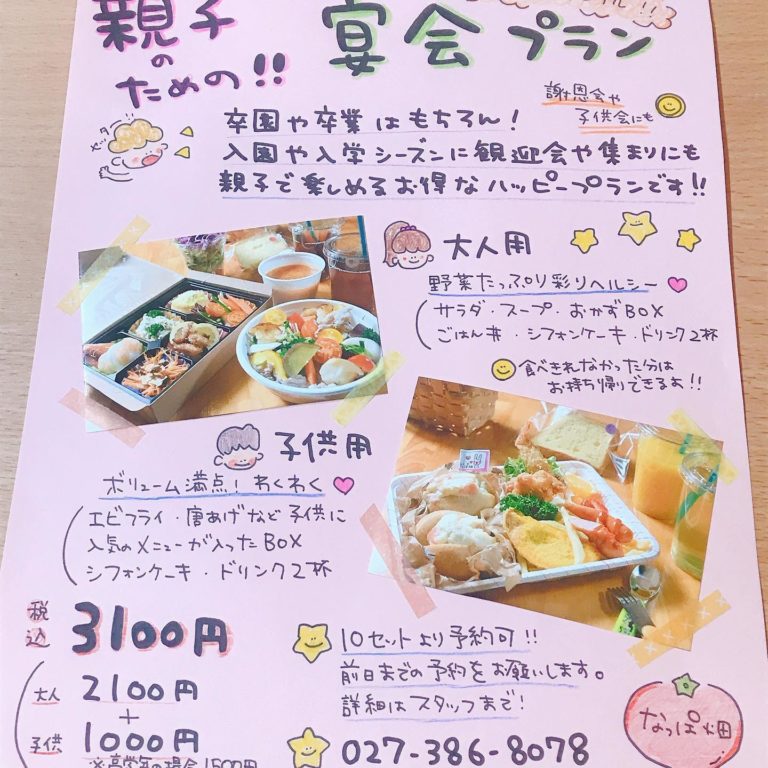 親子
の
ための!!
宴会プラン
謝恩会や
子供会にも
卒園や卒業はもちろん!
入園や入学シーズンに観迎会や集まりにも
親子で楽しめるお得なハッピープランです!!
大人用
野菜たっぷり彩りヘルシー
サラダ・スープ・おかずBOX
ごはん丼・シフォンケーキ・ドリンク2杯
食べきれなかった分は
お持ち帰りできるよ!!
子供用
ボリューム満点!わくわく
エビフライ・唐あげなど子供に
人気のメニューが入ったBOX
シフォンケーキ・ドリンク2杯
税込 3100円
大人 2100円
+
子供 1000円
※高学年の場合1500円
10セットより予約可!!
前日までの予約をお願いします。
詳細はスタッフまで!
027-386-8078
なっぱ畑